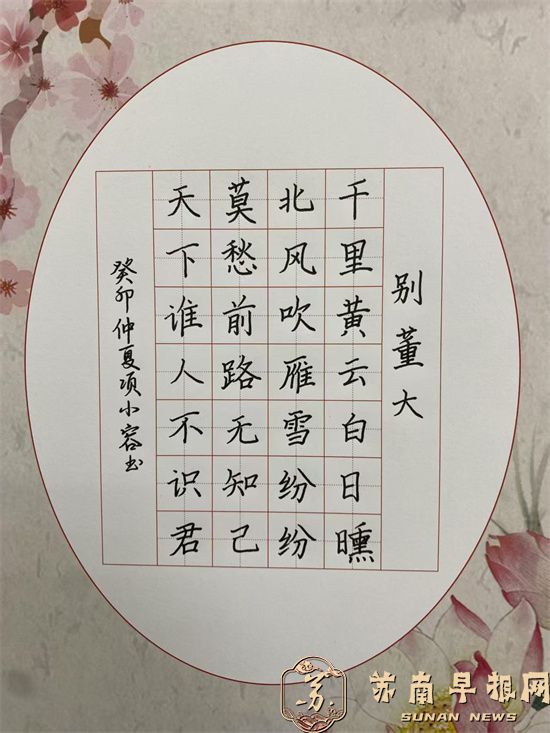 别董大
千里黄云白日曛
北风吹雁雪纷纷
莫愁前路无知己
天下谁人不识君
癸卯仲夏项小容书
苏
苏南早报网
SUNAN NEWS